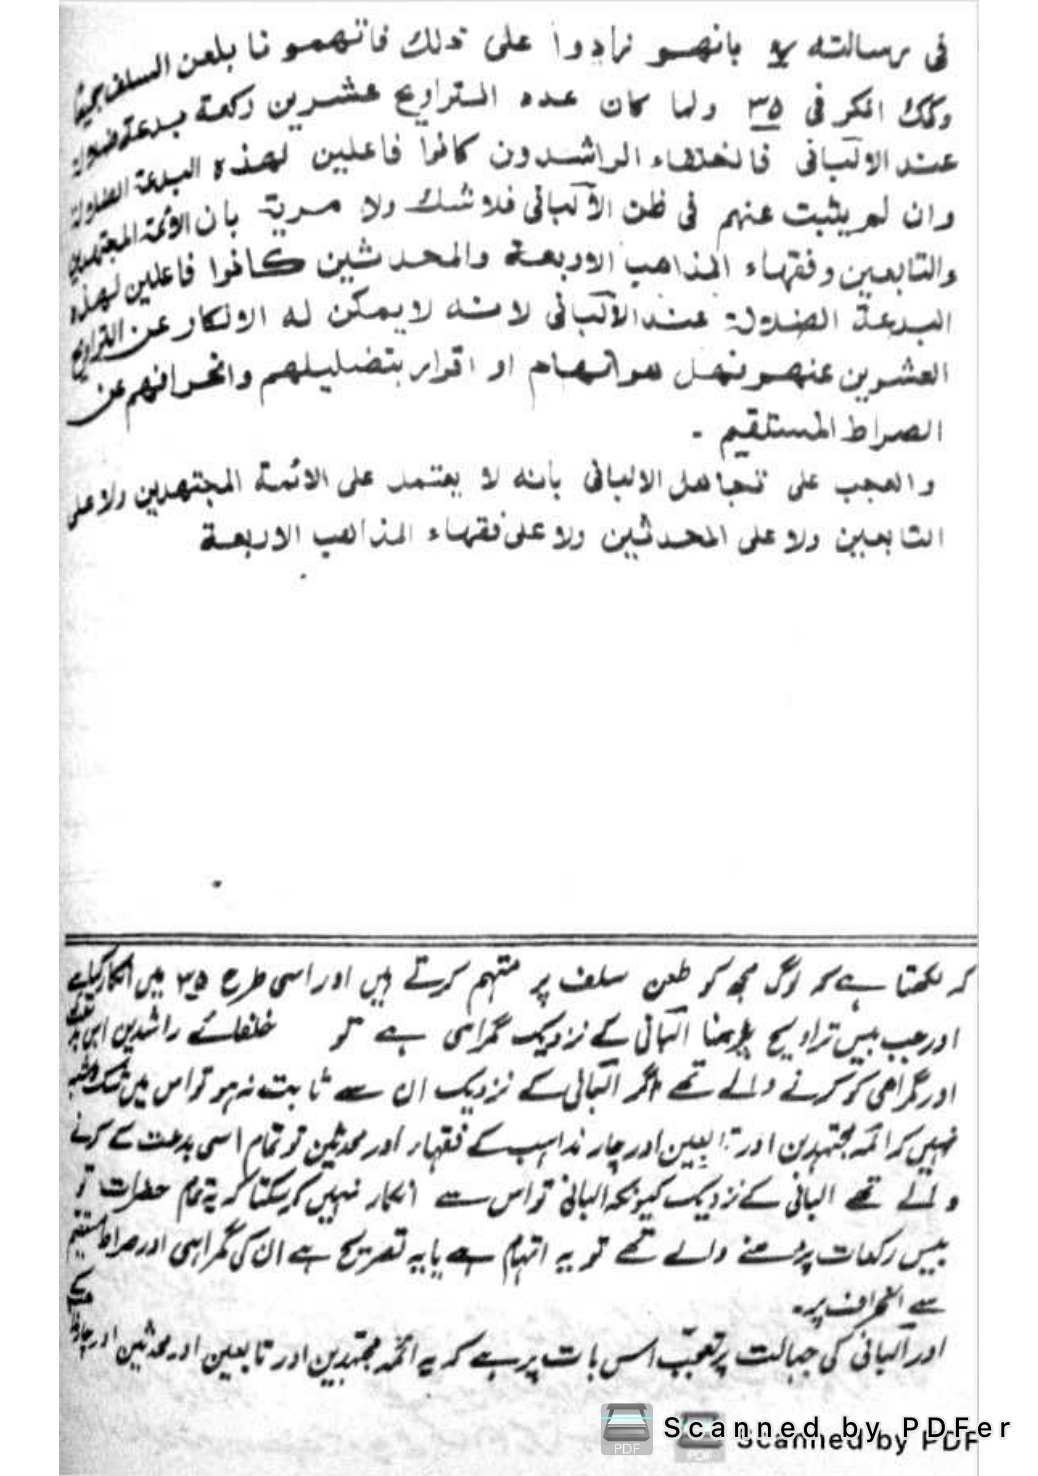 فی رسالته ۷ بانهم زادوا علی ذلك فاتهمونا بلعن السلف
المكر فی ۳۵ ولما كان عدد التراویح عشرین ركعة بدعة
عند الالبانی فالخلفاء الراشدون كانوا فاعلین لهذه البدعة الضلالة
وان لم یثبت عنهم فی ظن الالبانی فلا شك ولا مریة بان الائمة المجتهدین
والتابعین وفقهاء المذاهب الاربعة والمحدثین كانوا فاعلین لهذه
البدعة الضلالة عند الالبانی لانه لا یمكن له الانكار عن التراویح
العشرین عنهم فهل هو اتهام او اقرار بتضلیلهم وانحرافهم عن
الصراط المستقیم ۔
والعجب علی تجاهل الالبانی بانه لا یعتمد علی الائمة المجتهدین ولا علی
التابعین ولا علی المحدثین ولا علی فقهاء المذاهب الاربعة
كہ لكھتا ہے كہ لوگ مجھ كو طعن سلف پر متہم كرتے ہیں اور اسی طرح ۳۵ میں انكار كیا ہے
اور جب بیس تراویح پڑھنا البانی كے نزدیك گمراہی ہے تو خلفائے راشدین اس
اور گمراہی كو كرنے والے تھے اگر البانی كے نزدیك ان سے ثابت نہ ہو تو اس میں شك وشبہ
نہیں كہ ائمہ مجتہدین اور تابعین اور چار مذاہب كے فقہاء اور محدثین تو تمام اسی بدعت كے كرنے
والے تھے البانی كے نزدیك كیونكہ البانی تو اس سے انكار نہیں كر سكتا كہ یہ تمام حضرات تو
بیس ركعات پڑھنے والے تھے تو یہ اتہام ہے یا یہ تصریح ہے ان كی گمراہی اور صراط مستقیم
سے انحراف پر۔
اور البانی كی جہالت پر تعجب اس بات پر ہے كہ یہ ائمہ مجتہدین اور تابعین اور محدثین اور چار
Scanned by PDFer
Scanned by PDF